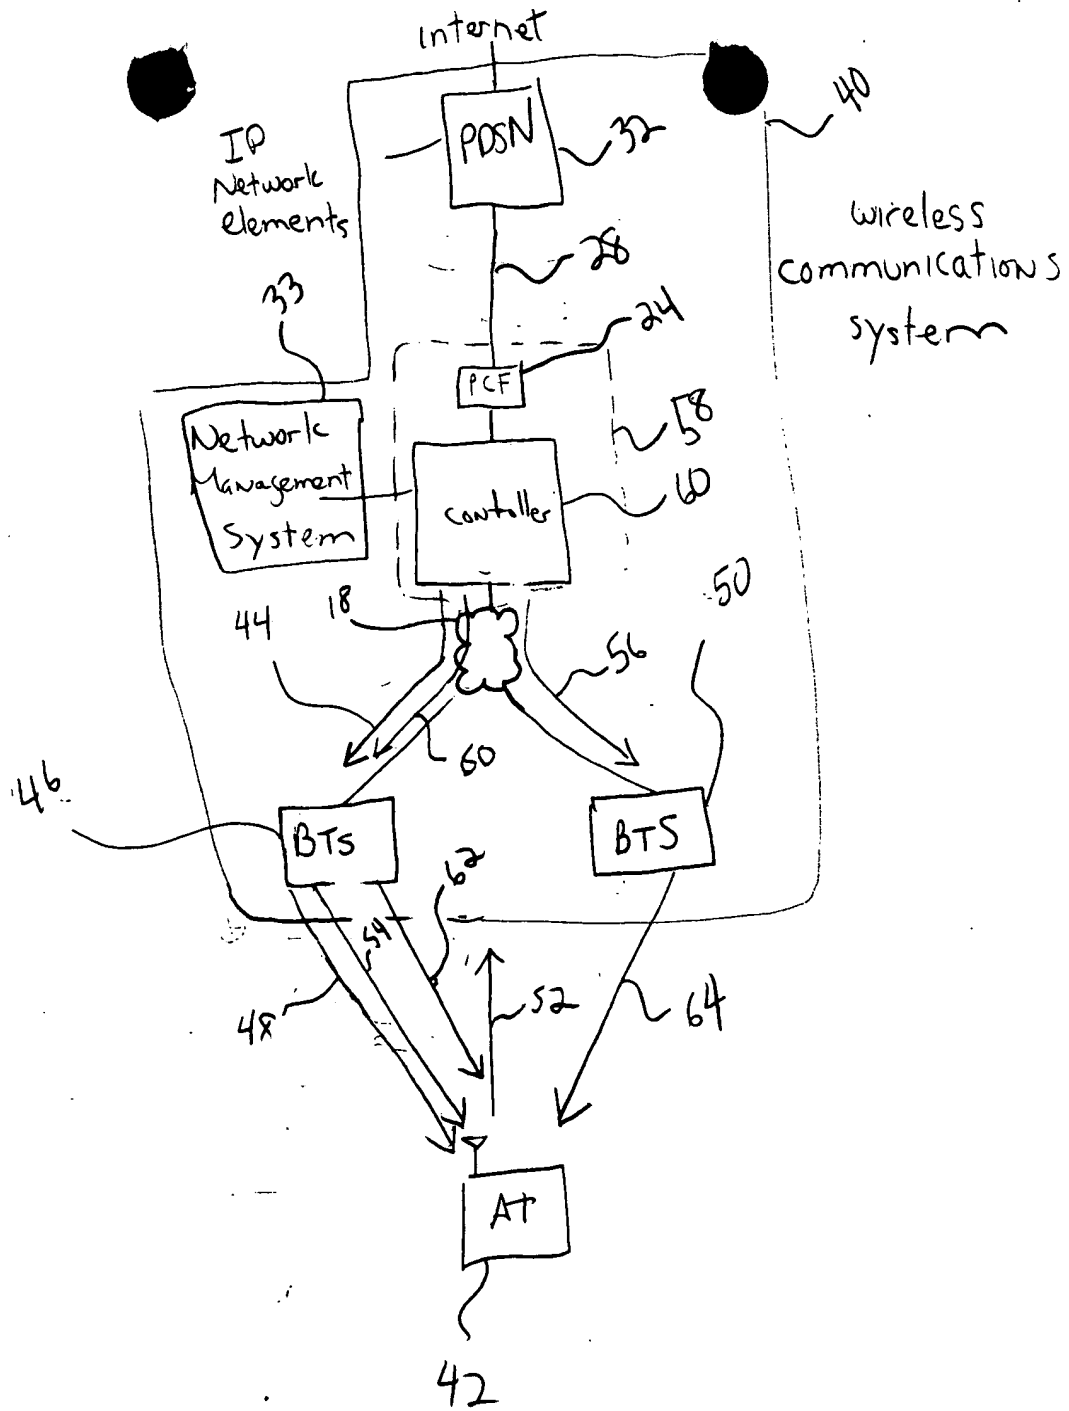 Internet
40
PDSN
32
IP
Network
elements
wireless
communications
system
28
33
24
PCF
58
Network
Management
System
60
Contoller
50
18
44
56
60
46
BTS
BTS
62
54
48
52
64
AT
42